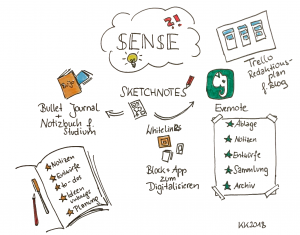 ?!
SENSE
SKETCHNOTES
Trello
Redaktions-
plan
f. Blog
Bullet Journal
+
Notizbuch f.
Studium
Whitelines
Block + App
zum
Digitalisieren
Evernote
Notizen
Entwürfe
to-dos
Ideen
Planung
Ablage
Notizen
Entwürfe
Sammlung
Archiv
KK2018